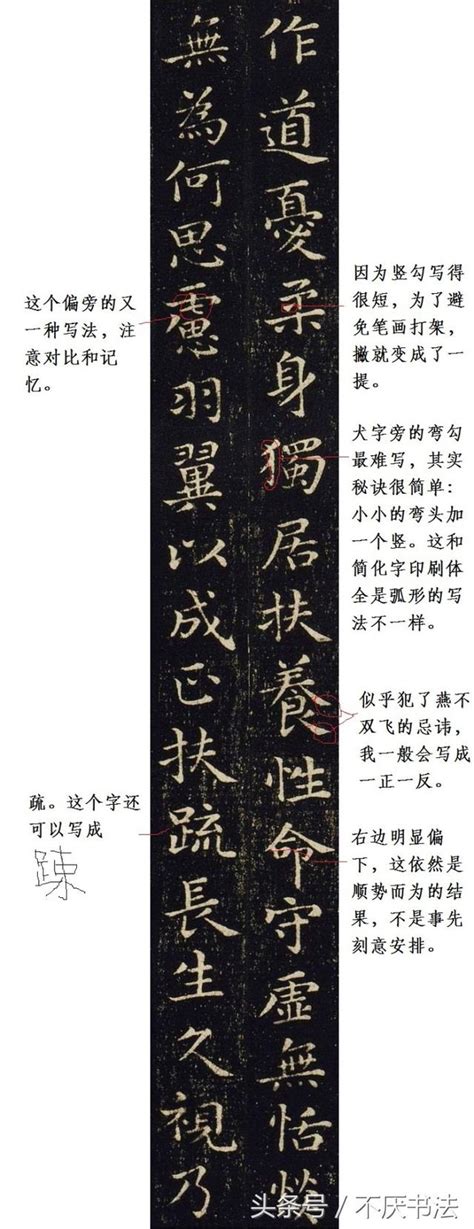 作道憂柔身獨居扶養性命守虛無恬
無為何思慮羽翼以成正扶疏長生久視乃
因为竖勾写得
很短，为了避
免笔画打架，
撇就变成了一
提。
犬字旁的弯勾
最难写，其实
秘诀很简单：
小小的弯头加
一个竖。这和
简化字印刷体
全是弧形的写
法不一样。
似乎犯了燕不
双飞的忌讳，
我一般会写成
一正一反。
右边明显偏
下，这依然是
顺势而为的结
果，不是事先
刻意安排。
这个偏旁的又
一种写法，注
意对比和记
忆。
疏。这个字还
可以写成
踈
头条号／不厌书法